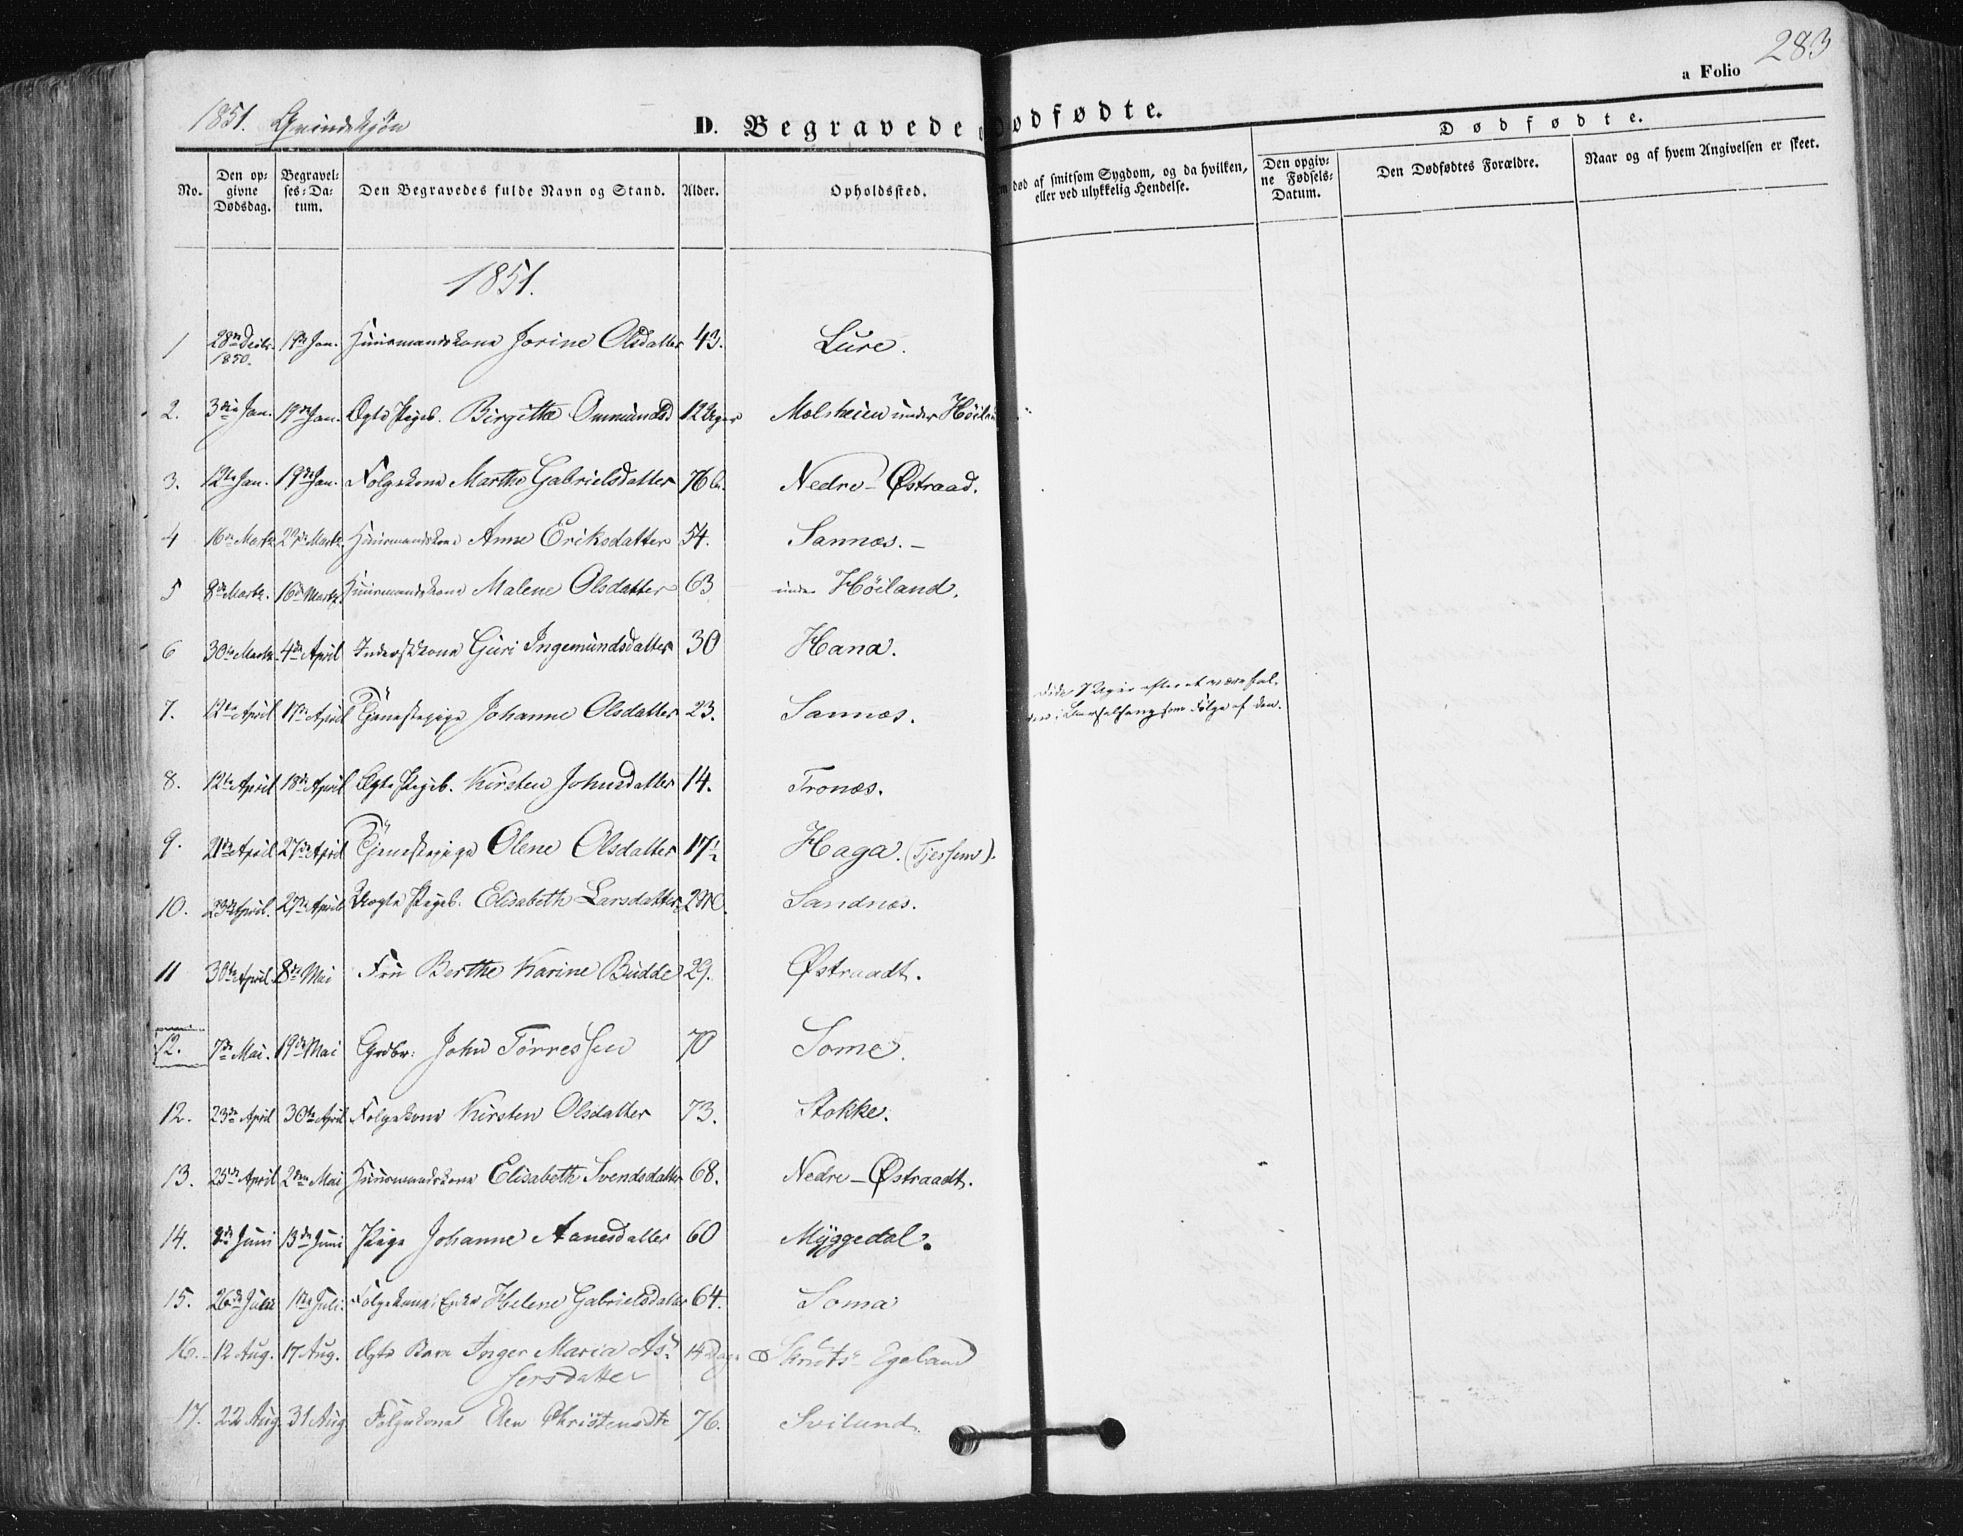 283
a Folio
1851. Qvindekjøn
D. Begravede o dødfødte.
Dødfødte.
No.
Den op-
givne
Dødsdag.
Begravel-
ses-Da-
tum.
Den Begravedes fulde Navn og Stand.
Alder.
Opholdssted.
m død af smitsom Sygdom, og da hvilken,
eller ved ulykkelig Hendelse.
Den opgiv-
ne Fødsels-
Datum.
Den Dødfødtes Forældre.
Naar og af hvem Angivelsen er skeet.
1851.
1 28de Decbr. 1850. Jan. Huusmandskone Jorine Olsdatter 43. Lure.
2. 3die Jan. 19de Jan. Ægte Pigeb. Birgithe Ommundsd 12 Uger Molsheien under Høiland
3. 12te Jan. 19de Jan. Folgekone Marthe Gabrielsdatter 76 Nedre-Østraad.
4 16de Marts 23de Marts. Huusmandskone Anne Eriksdatter 54. Sannæs.-
5 8de Marts. 16de Marts. Huusmandskone Malene Olsdatter 63 under Høiland.
6 30te Marts 4de April Inderstkone Guri Ingemundsdatter 30 Hana.
7. 12te April 17de April Tjenestepige Johanne Olsdatter 23. Sannæs. Døde 7 Uger efter at være fal-
den i Barselseng som Følge af den.
8. 12te April 18de April Ægte Pigeb. Kirsten Johnsdatter 14. Tronæs.
9. 21de April 27de April Tjenestepige Olene Olsdatter 17½ Haga. (Tjessem).
10. 23de April. 27de April Uægte Pigeb. Elisabeth Larsdatter 2 M. Sandnæs.
11 30te April. 8de Mai Fru Berthe Karine Budde 29. Østraadt.
12. 7de Mai. 19de Mai Grdbr: John Tørressen 70 Some.
12. 23de April 30te April Folgekone Kirsten Olsdatter 73. Stokke.
13. 25de April 2den Mai Huusmandskone Elisabeth Svendsdatter 68. Nedre-Østraadt.
14. Juni 13de Juni Pige Johanne Aanesdatter 60 Myggedal.
15. 26de Juni 1ste Juli. Folgekone: Enke Helene Gabrielsdatter 64. Soma
16. 12 Aug. 17 Aug. Ægte Barn Inger Maria As-
sersdatter 14 Dage Skruts Egeland
17. 22 Aug 31 Aug Folgekone Elen Christensdtr 76. Svilund.